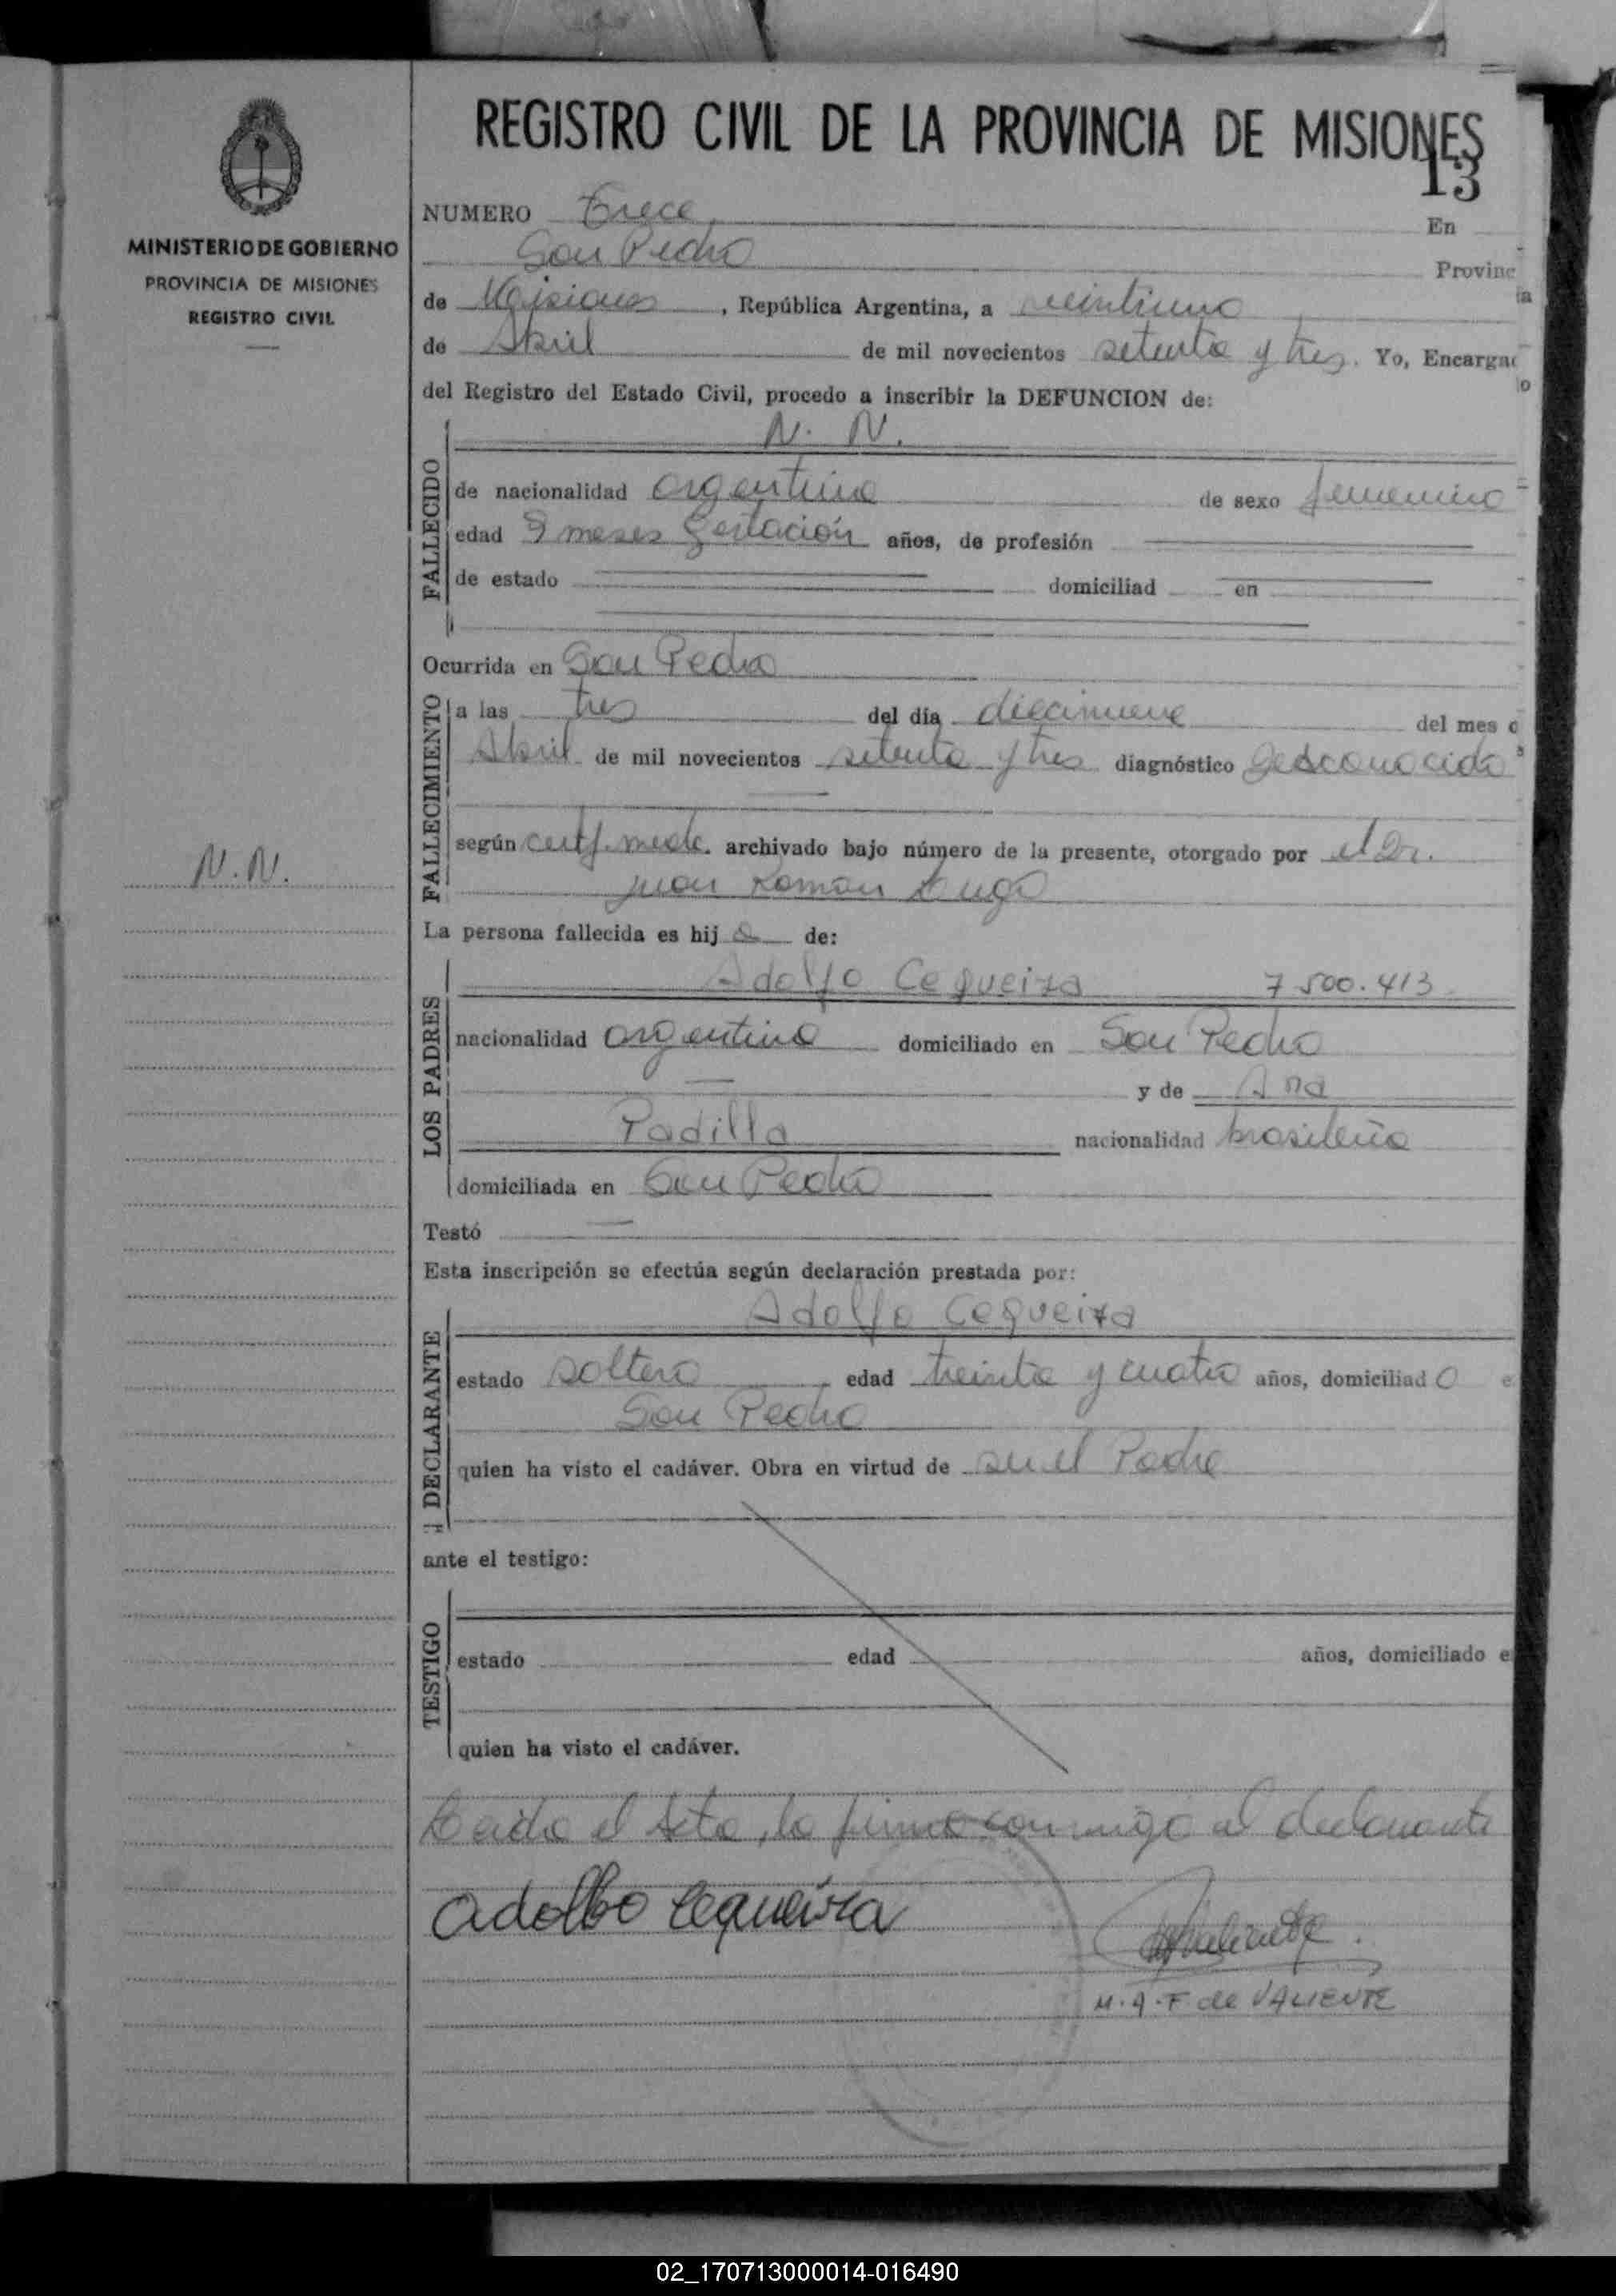 REGISTRO CIVIL DE LA PROVINCIA DE MISIONES
13
MINISTERIO DE GOBIERNO
PROVINCIA DE MISIONES
REGISTRO CIVIL
NUMERO Trece En
San Pedro Provinc
ia
de Misiones, República Argentina, a veintiuno
de Abril de mil novecientos setenta y tres. Yo, Encargad
o
del Registro del Estado Civil, procedo a inscribir la DEFUNCION de:
FALLECIDO
N. N.
de nacionalidad argentina de sexo femenino
edad 9 meses gestación años, de profesión
de estado domiciliad en
Ocurrida en San Pedro
FALLECIMIENTO
a las tres del día diecinueve del mes d
Abril de mil novecientos setenta y tres diagnóstico desconocido
según certf. medc. archivado bajo número de la presente, otorgado por el Dr.
Juan Roman Lugo
N.N.
La persona fallecida es hij a de:
LOS PADRES
Adolfo Cequeira 7.500.413
nacionalidad argentina domiciliado en San Pedro
y de Ana
Padilla nacionalidad brasileña
domiciliada en San Pedro
Testó
Esta inscripción se efectúa según declaración prestada por:
DECLARANTE
Adolfo Cequeira
estado soltero edad treinta y cuatro años, domiciliad o e
San Pedro
quien ha visto el cadáver. Obra en virtud de ser el Padre
ante el testigo:
TESTIGO
estado edad años, domiciliado e
quien ha visto el cadáver.
Leida el Acta, la firma conmigo el declarante
Adolfo Cequeira
M.A.F de VALIENTE
02_170713000014-016490